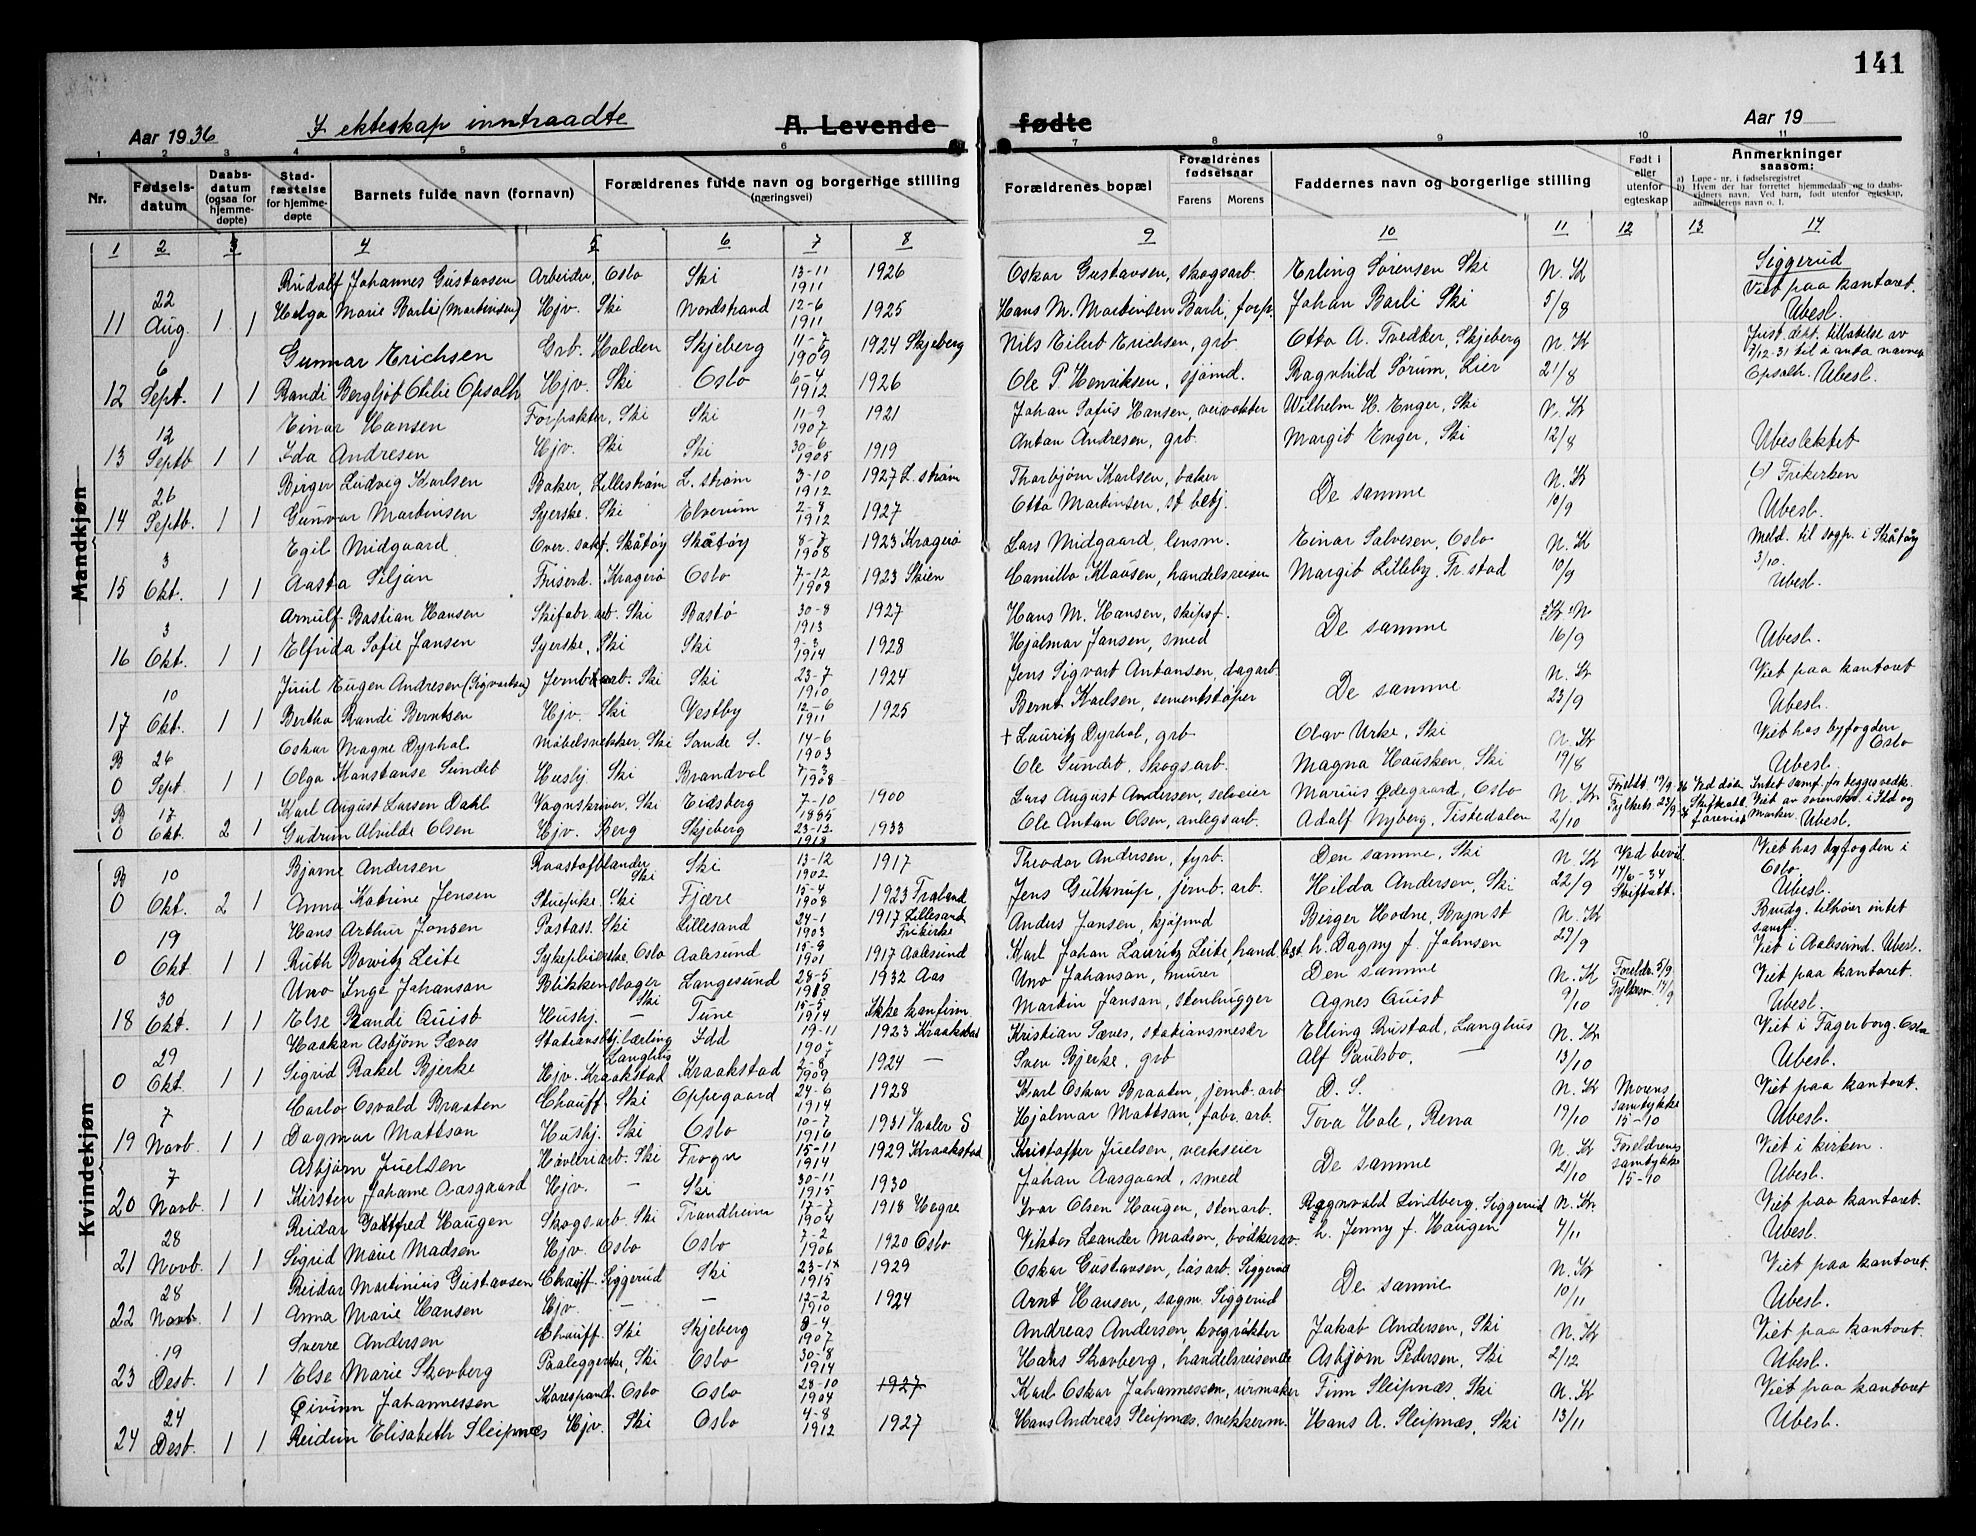 141
Aar 1936 I ekteskap inntraadte A. Levende fødte Aar 19
1 2 3 4 5 6 7 8 9 10 11
Nr. Fødsels-datum Daabs-datum (ogsaa for hjemme-døpte) Stad-fæstelse for hjemme-døpte Barnets fulde navn (fornavn) Forældrenes fulde navn og borgerlige stilling (næringsvei) Forældrenes bopæl Forældrenes fødselsaar Farens Morens Faddernes navn og borgerlige stilling Født i eller utenfor egteskap Anmerkninger saasom: a) Løpe-nr. i fødselsregistret b) Hvem der har forrettet hjemmedaab og to daabsvidners navn. Ved barn, født utenfor egteskap, anmelderens navn o. l.
1 2 3 4 5 6 7 8 9 10 11 12 13 14
Mandkjøn
Rudolf Johannes Gustavsen Arbeider, Oslo Ski 13-11 1911 1926 Oskar Gustavsen, skogsarb. Erling Sørensen Ski N. Kr Siggerud Viet paa kantoret.
11 22 Aug. 1 1 Helga Marie Barli (Martinsen) Hjv. Ski Nordstrand 12-6 1911 1925 Hans M. Martinsen Barli, forp. Johan Barli Ski 5/8 Ubesl.
Gunnar Erichsen Grb. Halden Skjeberg 11-7 1909 1924 Skjeberg Nils Eilert Erichsen, grb Otto A. Tvedter, Skjeberg N. Kr Just. dept. tillatelse av 7/12-31 til å anta navnet
12 6 Sept. 1 1 Randi Bergljot Otilie Opsalh Hjv. Ski Oslo 6-4 1912 1926 Ole P. Henriksen, sjømd. Ragnhild Sørum, Lier 21/8 Opsalh. Ubesl.
Einar Hansen Forpakter, Ski Ski 11-9 1907 1921 Johan Sofus Hansen, veivokter Wilhelm H. Enger, Ski N. Kr
13 12 Septb 1 1 Ida Andresen Hjv. Ski Ski 30-6 1905 1919 Anton Andresen, grb. Margit Enger, Ski 12/8 Ubeslektet
Birger Ludvig Karlsen Baker, Lillestrøm L. strøm 3-10 1912 1927 L. strøm Thorbjørn Karlsen, baker De samme N. Kr Frikerken
14 26 Septb. 1 1 Gunvor Martinsen Syerske, Ski Elverum 2-8 1912 1927 Otto Martinsen, st betj. 10/9 Ubesl.
Egil Midgaard Over. sakf. Skåtøy Skåtøy 8-7 1908 1923 Kragerø Lars Midgaard, lensm. Einar Salvesen, Oslo N. Kr Meld. til sogpr. i Skåtøy 3/10.
15 3 Okt. 1 1 Aasta Siljan Friserd. Kragerø Oslo 7-12 1908 1923 Skien Camillo Klausen, handelsreisen Margit Lilleby, Fr. stad 10/9 Ubesl.
Arnulf Bastian Hansen Skifabr. arb. Ski Bastø 30-8 1913 1927 Hans M. Hansen, skipsf. De samme
16 3 Okt. 1 1 Elfrida Sofie Jansen Syerske, Ski Ski 9-3 1914 1928 Hjalmar Jansen, smed 16/9 Ubesl.
Juul Eugen Andresen (Sigvartsen) Jernb. arb. Ski Ski 23-7 1910 1924 Jens Sigvart Antonsen, dagarb. De samme N. Kr Viet paa kantoret
17 10 Okt. 1 1 Bertha Randi Berntsen Hjv. Ski Vestby 12-6 1911 1925 Bernt Karlsen, sementstøper 23/9 Ubesl.
Oskar Magne Dyrhol Møbelsnekker, Ski Sande S. 14-6 1903 + Lauritz Dyrhol, grb Olav Urke, Ski N. Kr Viet hos byfogden Oslo
B 0 26 Sept. 1 1 Olga Konstanse Sundet Husbj. Ski Brandval 7-3 1908 Ole Sundet, Skogsarb. Magna Hausken, Ski 19/8 Ubesl.
Karl August Larsen Dahl Vognskriver, Ski Eidsberg 7-10 1885 1900 Lars August Andersen, seleier Marius Ødegaard, Oslo N. Kr Ved døden Intet samf. for begges vedk. Viet av sorenskr. i Idd og
B 0 17 Okt. 2 1 Gudrun Alvilde Olsen Hjv. Berg Skjeberg 23-12 1913 1933 Ole Anton Olsen, anlegsarb. Adolf Nyberg, Tistedalen 2/10 Skifteatt. forevist Marker. Ubesl.
Kvindekjøn
Bjarne Andersen Raastofblander Ski Ski 13-12 1902 1917 Theodor Andersen, fyrb. Den samme, Ski N. Kr Ved bevil. 14/6-34 Viet hos byfogden i Oslo,
B 0 10 Okt. 2 1 Anna Katrine Jensen Stuepike. Ski Fjære 15-4 1908 1923 Froland Jens Gulknup, jernb. arb. Hilda Andersen, Ski 22/9 Skifteatt. Ubesl.
Hans Arthur Jonsen Postass. Ski Lillesand 24-1 1903 1917 Lillesand Frikirke Anders Jansen, kjøpmd Birger Hodne, Bygn st N. Kr Brudg. tilhører intet samf.
0 19 Okt 1 1 Ruth Bowitz Leite Sykepleierske, Oslo Aalesund 15-8 1901 1917 Aalesund Karl Johan Lauritz Leite, hand. bst. h. Dagny f. Johnsen 29/9 Viet i Aalesund. Ubesl.
Uno Inge Johanson Blikkenslager Ski Langesund 28-5 1918 1932 Aas Uno Johanson, murer Den samme N. Kr Foreldr. 5/9. Viet paa kantoret.
18 30 Okt. 1 1 Else Randi Quist Husbj. — Tune 15-5 1914 Ikke konfirm. Martin Jansan, stenhugger Agnes Quist 9/10 Fylkesm. 14/9 Ubesl.
Haakon Asbjørn Sæves Stationsbtj. lærling Langhus Idd 19-11 1907 1923 Kraakstad Kristian Sæves, stationsmester Elling Rustad, Langhus N. Kr Viet i Fagerborg. Oslo
0 29 Okt. 1 1 Sigrid Rakel Bjerke Hjv. Kraakstad Kraakstad 2-8 1909 1924 — Sven Bjerke, grb Alf Paulsbo. — 13/10 Ubesl.
Carlo Osvald Braaten Chauff. Ski Oppegaard 24-6 1914 1928 Karl Oskar Braaten, jernb. arb D. S. N. Kr Morens samtykke Viet paa kantoret.
19 7 Novb. 1 1 Dagmar Mattson Husbj. Ski Oslo 10-7 1916 1931 Vaaler S Hjalmar Mattson, fabr. arb. Tova Hole, Rena 19/10 15-10 Ubesl.
Asbjørn Juelsen Høvleriarb. Ski Frogn 15-11 1914 1929 Kraakstad Kristoffer Juelsen, verkseier De samme N. Kr Foreldrenes samtykke Viet i kirken.
20 7 Novb. 1 1 Kirsten Johanne Aasgaard Hjv. — Ski 30-11 1915 1930 Johan Aasgaard, smed 21/10 15-10 Ubesl.
Reidar Gottfred Haugen Skogsarb. Ski Trondheim 17-3 1904 1918 Hegre Ivar Olsen Haugen, stenarb. Ragnvald Lindberg, Siggerud N. Kr Viet paa kantoret.
21 28 Novb. 1 1 Sigrid Marie Madsen Hjv. Oslo Oslo 7-2 1906 1920 Oslo Viktor Leander Madsen, bødkersv. h. Jenny f. Haugen 4/11 Ubesl.
Reidar Martinius Gustavsen Chauff. Siggerud Ski 23-1 1915 1929 Oskar Gustavsen, løsarb. Siggerud De samme N. Kr Viet paa kantoret.
22 28 Novb. 1 1 Anna Marie Hansen Hjv. — — 12-2 1910 1924 Arnt Hansen, sagm. Siggerud 10/11 Ubesl.
Sverre Andersen Chauff. Ski Skjeberg 8-4 1907 Andreas Andersen, kvegrøkter Jakob Andersen, Ski N. Kr Viet paa kantoret.
23 19 Desb. 1 1 Else Marie Skovberg Paaleggerske, Ski Oslo 30-8 1914 Hans Skovberg, handelsreisende Asbjørn Pedersen, Ski 2/12 Ubesl.
Eivinn Johannessen Korespond. Oslo Oslo 28-10 1904 1927 Karl Oskar Johannessen, urmaker Finn Sleipnæs, Ski N. Kr Viet paa kantoret
24 24 Desb. 1 1 Reidun Elisabeth Sleipnæs Hjv. Ski Oslo 4-8 1912 1927 Hans Andreas Sleipnæs, snekkerm. Hans A. Sleipnæs, Ski 13/11 Ubesl.